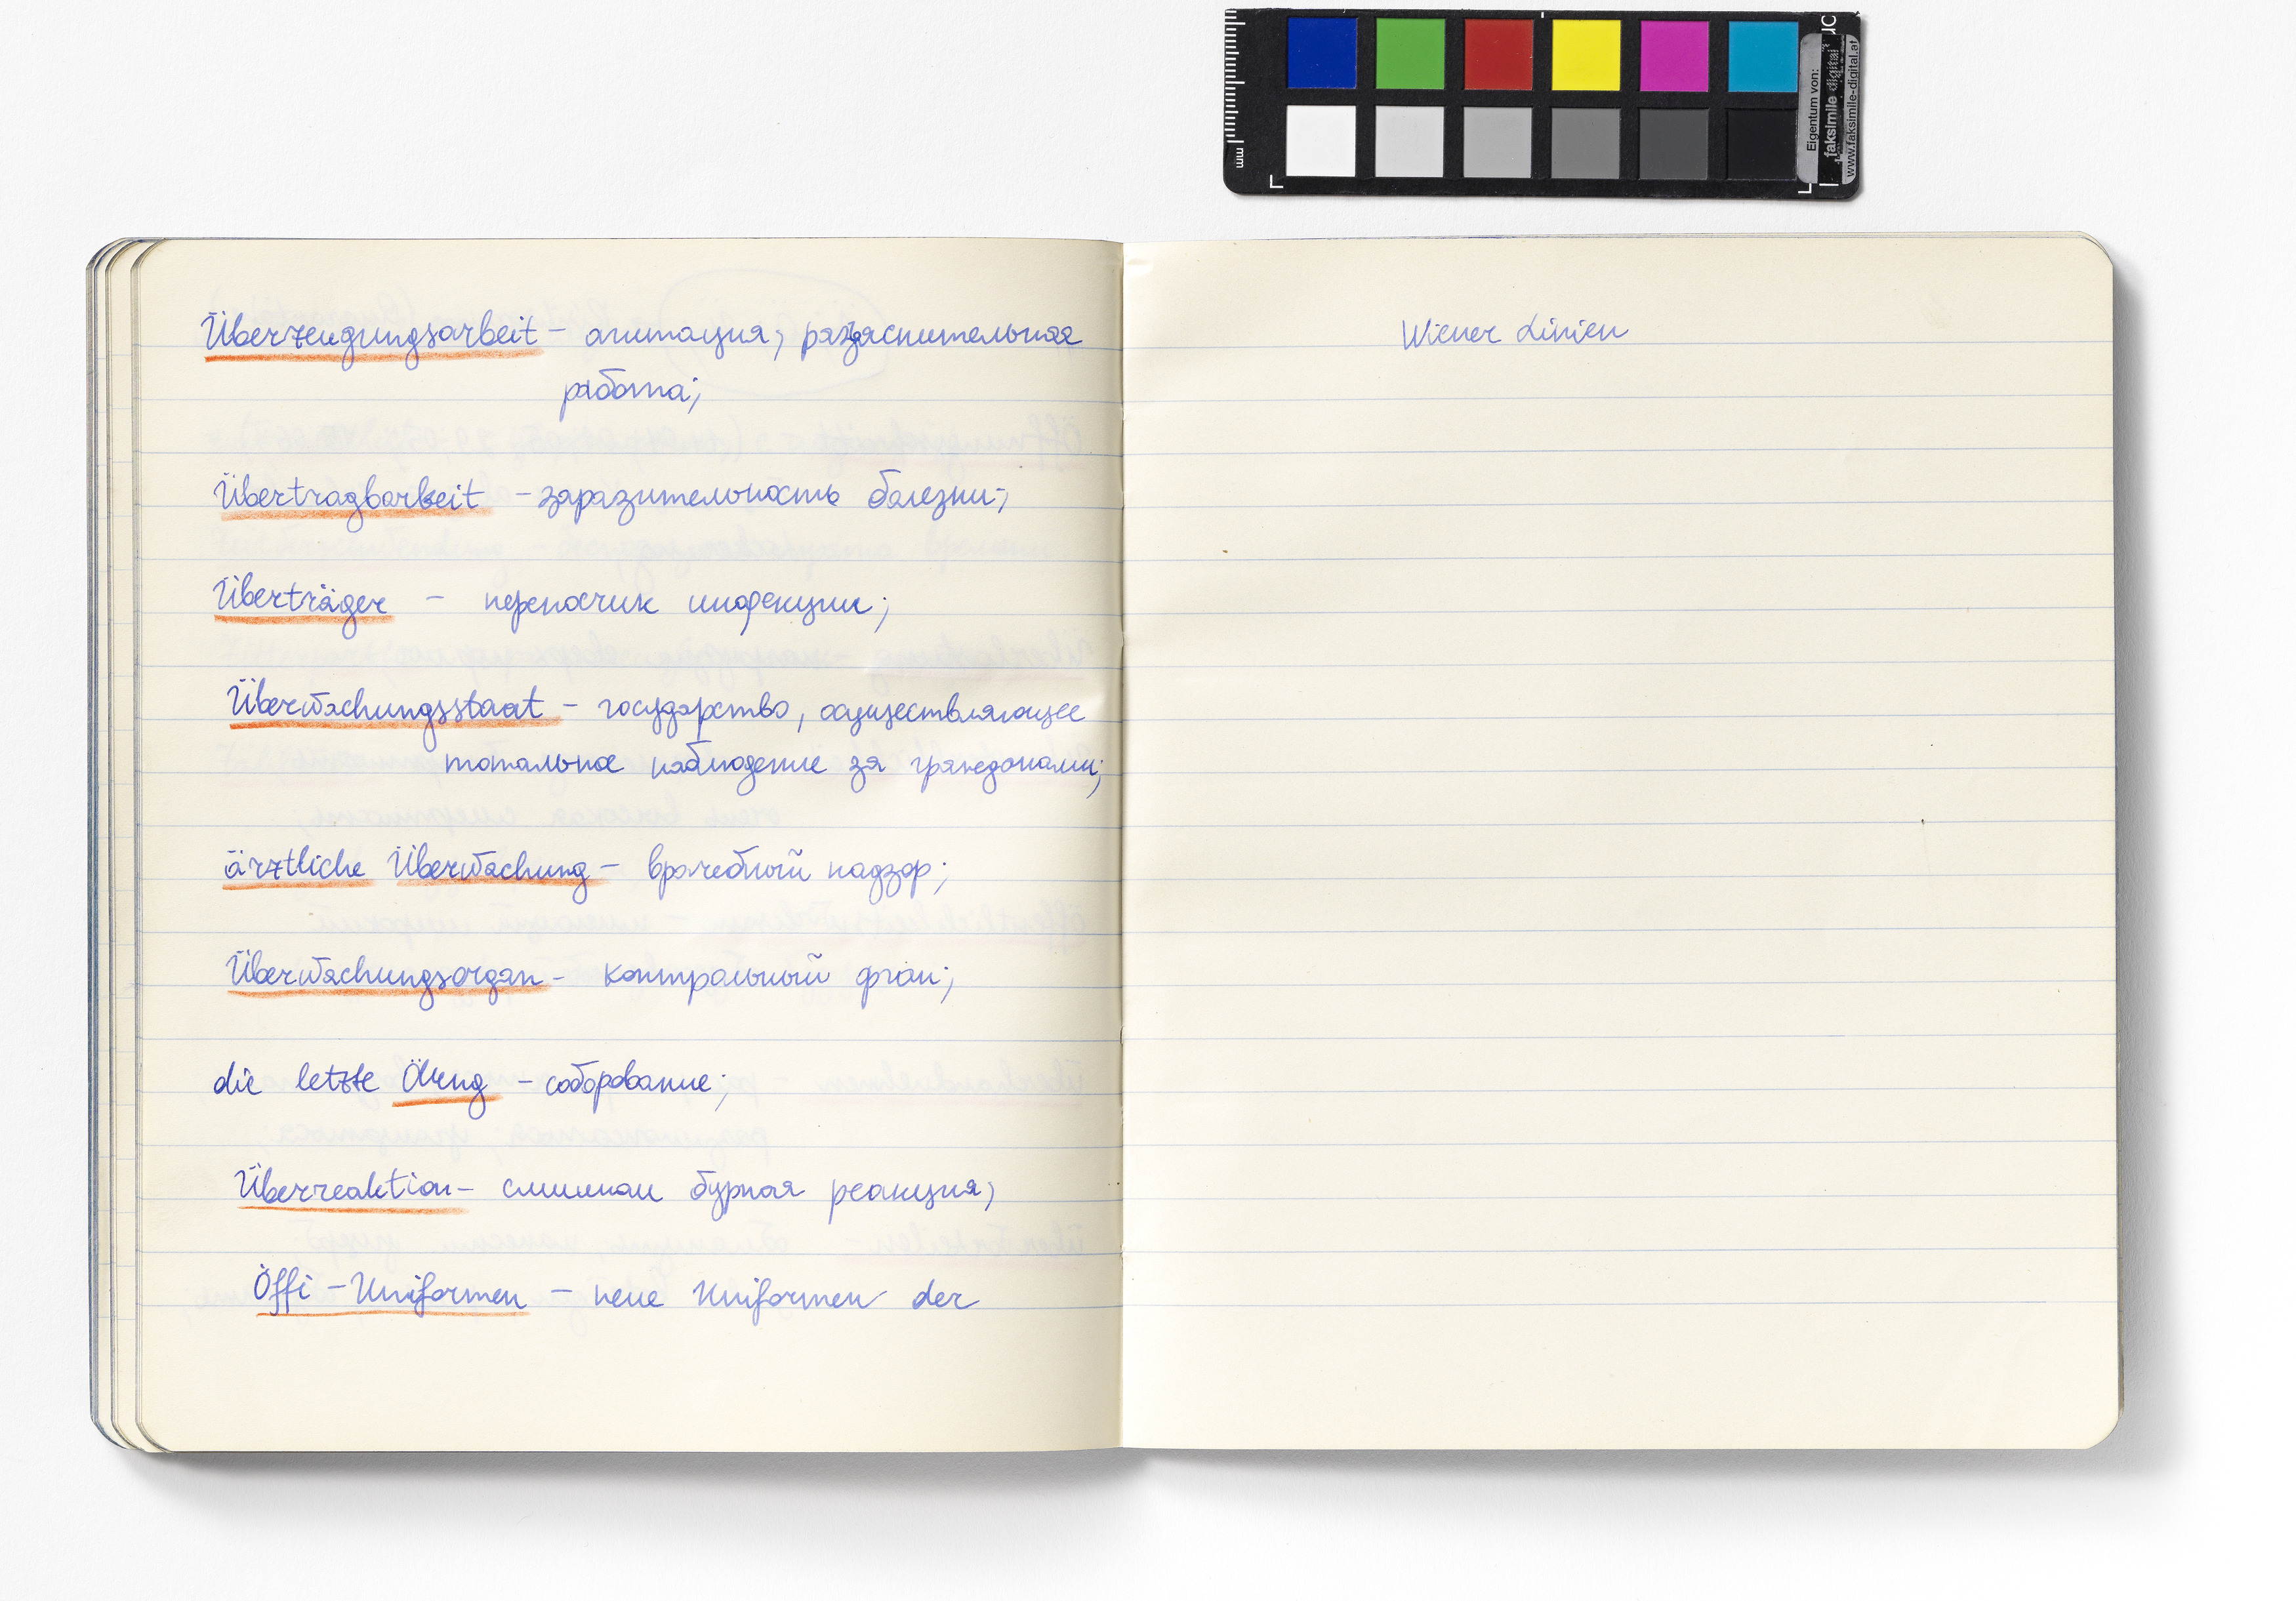 Überzeugungsarbeit – агитация; разъяснительная
работа;
Übertragbarkeit – заразительность болезни;
Überträger – переносчик инфекции;
Überwachungsstaat – государство, осуществляющее
тотальное наблюдение за гражданами;
ärztliche Überwachung – врачебный надзор;
Überwachungsorgan – контрольный орган;
die letzte Ölung – соборование;
Überreaktion – слишком бурная реакция;
Öffi-Uniformen – neue Uniformen der
Wiener Linien
mm
Eigentum von:
faksimile digital
www.faksimile-digital.at